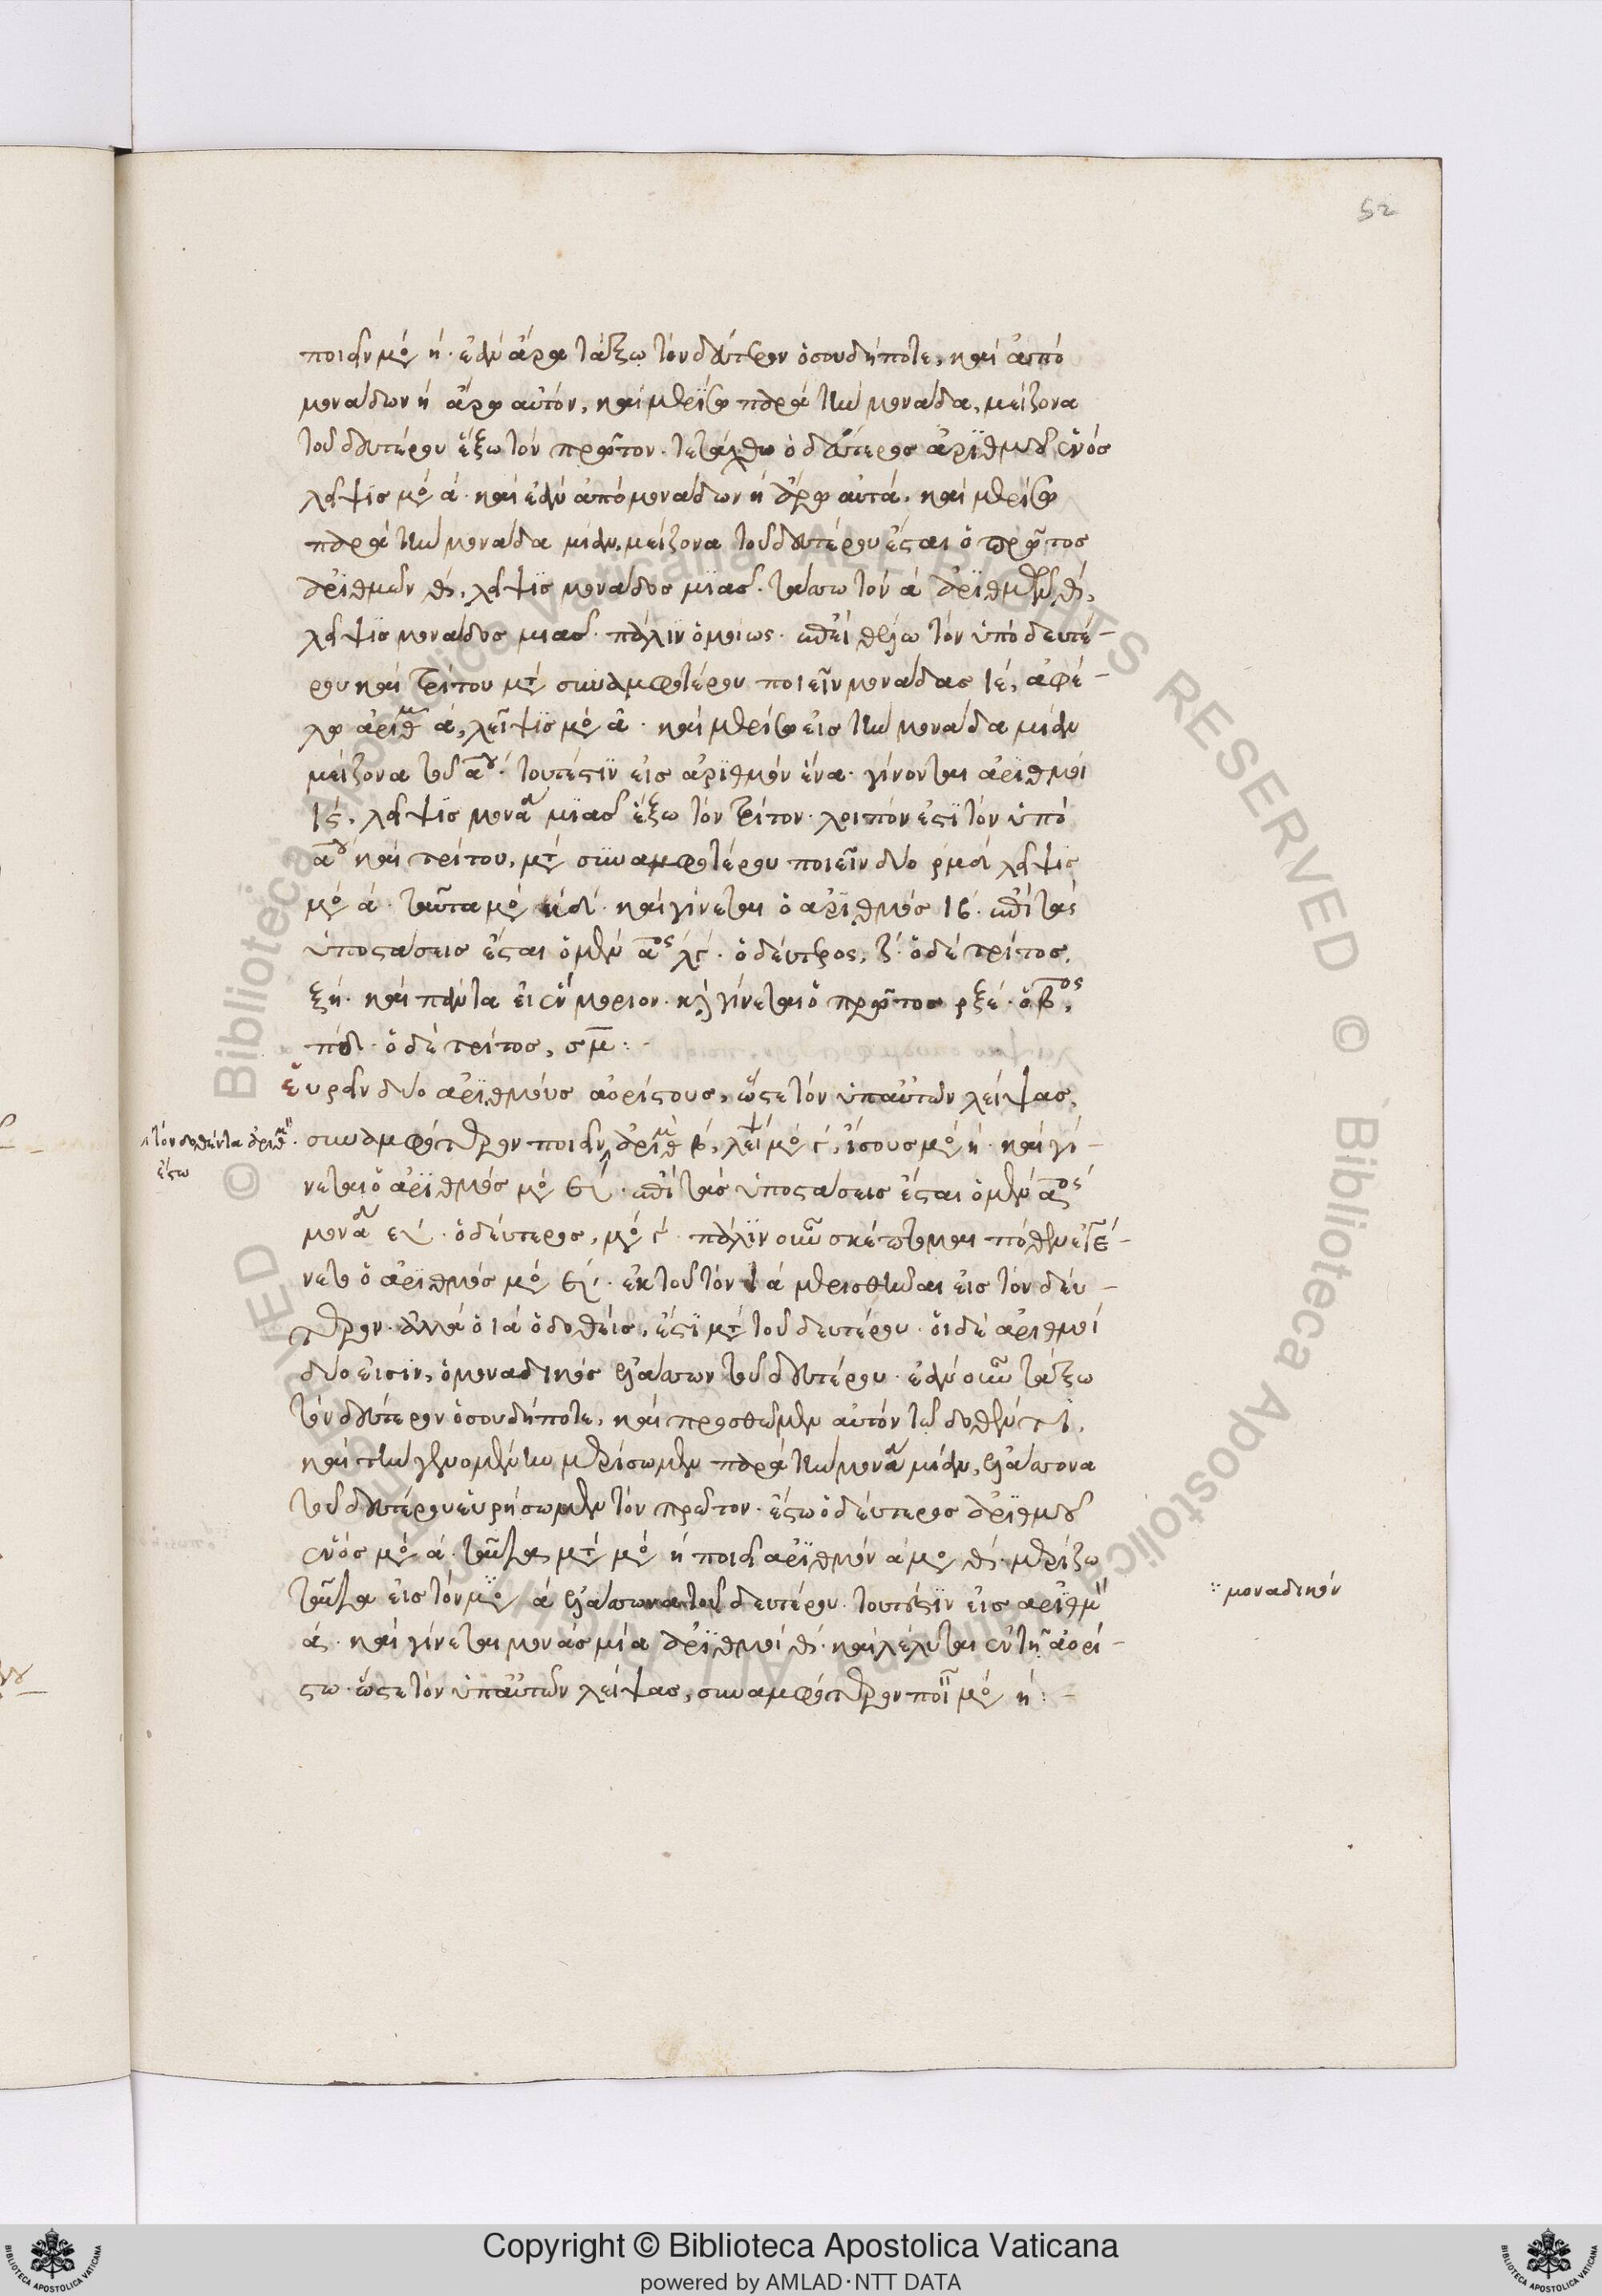 52
ποιεῖν μο η. ἐὰν ἄρα τάξω τὸν δεύτερον ὁσουδήποτε, καὶ ἀπὸ
μονάδων η ἄρω αὐτόν, καὶ μερίσω παρὰ τὴν μονάδα, μείζονα
τοῦ δευτέρου ἕξω τὸν πρῶτον. τετάχθω ὁ δεύτερος ἀριθμοῦ ἑνὸς
λεῖψις μο α. καὶ ἐὰν ἀπὸ μονάδων η ἄρω αὐτά, καὶ μερίσω
παρὰ τὴν μονάδα μίαν, μείζονα τοῦ δευτέρου ἔσται ὁ πρῶτος
ἀριθμῶν θ, λεῖψις μονάδος μιᾶς. τάσσω τὸν α ἀριθμῶν θ,
λεῖψις μονάδος μιᾶς. πάλιν ὁμοίως. ἐπεὶ θέλω τὸν ὑπὸ δευτέ-
ρου καὶ τρίτου μετὰ συναμφοτέρου ποιεῖν μονάδας ιε, ἀφέ-
λω ἀριθμ α, λεῖψις μο α. καὶ μερίσω εἰς τὴν μονάδα μίαν
μείζονα τοῦ αου. τουτέστιν εἰς ἀριθμὸν ἕνα. γίνονται ἀριθμοὶ
ιϛ, λεῖψις μονα μιᾶς ἕξω τὸν τρίτον. λοιπόν ἐστι τὸν ὑπὸ
αου καὶ τρίτου, μετὰ συναμφοτέρου ποιεῖν δυο ρμδ λεῖψις
μο α. ταῦτα μο κδ. καὶ γίνεται ὁ ἀριθμὸς ιβ. ἐπὶ τὰς
ὑποστάσεις ἔσται ὁ μὲν αος λγ. ὁ δεύτερος, ζ. ὁ δὲ τρίτος,
ξη. καὶ πάντα εἰς ἓν μόριον. καὶ γίνεται ὁ πρῶτος ρξε. ὁ βος,
πδ. ὁ δὲ τρίτος, σμ:-
εὑρεῖν δύο ἀριθμοὺς ἀορίστους, ὥστε τὸν ὑπ' αὐτῶν λείψας,
συναμφότερον ποιεῖν ἀριθμ β, λεῖψ μο γ, ἴσους μο η. καὶ γί-
νεται ὁ ἀριθμὸς μο ε. ἐπὶ τὰς ὑποστάσεις ἔσται ὁ μὲν αος
μονα ε. ὁ δεύτερος, μο γ. πάλιν οὖν σκέπτομαι πόθεν ἐγέ-
νετο ὁ ἀριθμὸς μο ε. ἐκ τοῦ τὸν ια μερισθῆναι εἰς τὸν δεύ-
τερον. ἀλλὰ ὁ ια ὁ δοθείς, ἐστι μετὰ τοῦ δευτέρου. οἱ δὲ ἀριθμοὶ
δύο εἰσίν, ὁ μοναδικὸς ἐλάσσων τοῦ δευτέρου. ἐὰν οὖν τάξω
τὸν δεύτερον ὁσουδήποτε, καὶ προσθῶμεν αὐτὸν τῷ δοθέντι,
καὶ τὴν γενομένην μερίσωμεν παρὰ τὴν μονα μίαν, ἐλάσσονα
τοῦ δευτέρου εὑρήσωμεν τὸν πρῶτον. ἔστω ὁ δεύτερος ἀριθμοῦ
ἑνὸς μο α. ταῦτα μετὰ μο η ποιεῖ ἀριθμὸν α μο θ. μερίζω
ταῦτα εἰς τὸν μο α ἐλάσσονα τοῦ δευτέρου. τουτέστιν εἰς ἀριθμ
α. καὶ γίνεται μονὰς μία ἀριθμοὶ θ. καὶ λέλυται ἐν τῇ ἀορί-
στω. ὥστε τὸν ὑπ' αὐτῶν λείψας, συναμφότερον ποι μο η:-
τὸν δοθέντα ἀριθμ.
ἔστω
μοναδικόν
Copyright © Biblioteca Apostolica Vaticana
powered by AMLAD·NTT DATA